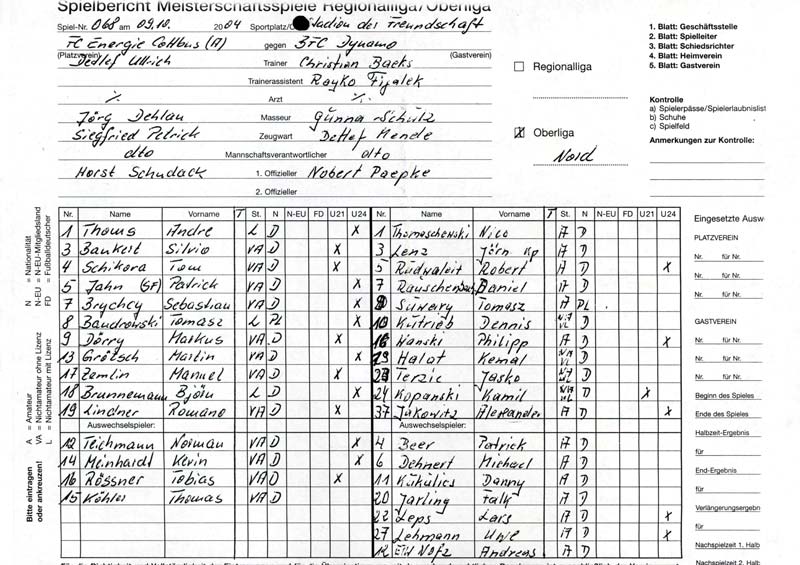 Spielbericht Meisterschaftsspiele Regionalliga/Oberliga
Spiel-Nr. 068 am 09.10. 2004 Sportplatz/ Stadion der Freundschaft
FC Energie Cottbus (A) gegen BFC Dynamo
(Platzverein) (Gastverein)
Detlef Ullrich Trainer Christian Backs
Trainerassistent Rayko Fijalek
./. Arzt ./.
Jörg Dehlau Masseur Gunnar Schulz
Siegfried Petrick Zeugwart Detlef Hende
dto Mannschaftsverantwortlicher dto
Horst Schudack 1. Offizieller Nobert Paepke
2. Offizieller
Regionalliga
X Oberliga
Nord
1. Blatt: Geschäftsstelle
2. Blatt: Spielleiter
3. Blatt: Schiedsrichter
4. Blatt: Heimverein
5. Blatt: Gastverein
Kontrolle
a) Spielerpässe/Spielerlaubnislist
b) Schuhe
c) Spielfeld
Anmerkungen zur Kontrolle:
N = Nationalität
N-EU = N-EU-Mitgliedsland
FD = Fußballdeutscher
A = Amateur
VA = Nichtamateur ohne Lizenz
L = Nichtamateur mit Lizenz
Bitte eintragen
oder ankreuzen!
Nr. Name Vorname T St. N N-EU FD U21 U24 Nr. Name Vorname T St. N N-EU FD U21 U24
1 Thoms Andre L D X 1 Thomaschewski Nico A D
3 Bankert Silvio VA D X 3 Lenz Jörn Kp A D
4 Schikora Tom VA D X 5 Rudwaleit Robert A D X
5 Jahn (SF) Patrick VA D X 7 Rauschenbach Daniel A D
7 Brychcy Sebastian VA D X Suwary Tomasz A PL
8 Bandrowski Tomasz L PL X 10 Kutrieb Dennis NA VL D
9 Dörry Markus VA D X 16 Wanski Philipp A D X
13 Grötsch Martin VA D X 19 Halat Kemal NA VL D
17 Zemlin Manuel VA D X 23 Terzic Jasko D
18 Brunnemann Björn L D X 24 Kopanski Kamil D X
19 Lindner Romano VA D X 37 Jakowitz Alexander A D X
Auswechselspieler: Auswechselspieler:
12 Teichmann Norman VA D X 4 Beer Patrick A D
14 Meinhardt Kevin VA D X 6 Dehnert Michael A D
16 Rössner Tobias VA D X 11 Kukulies Danny A D
15 Köhler Thomas VA D 20 Jarling Falk A D
22 Leps Lars A D X
27 Lehmann Uwe A D X
12 ETW Notz Andreas A D
Eingesetzte Ausw
PLATZVEREIN
Nr. für Nr.
Nr. für Nr.
Nr. für Nr.
GASTVEREIN
Nr. für Nr.
Nr. für Nr.
Nr. für Nr.
Beginn des Spieles
Ende des Spieles
Halbzeit-Ergebnis
für
End-Ergebnis
für
Verlängerungsergebn
für
Nachspielzeit 1. Halb
Nachspielzeit 2. Halb